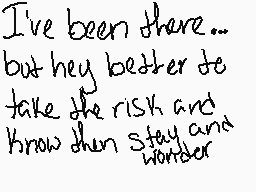 I've been there...
but hey better to
take the risk and
know then stay and
wonder